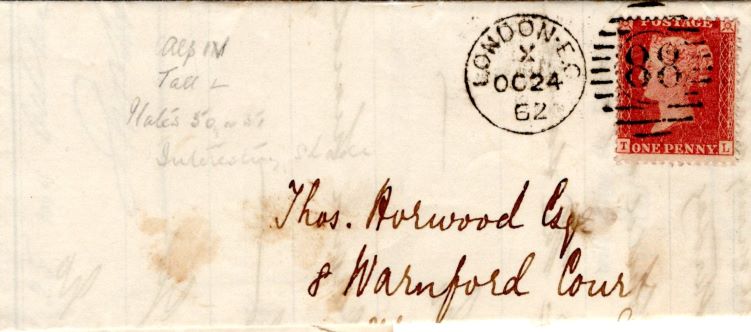 Alp IV
Tall L
Plates 50 or 51
Interesting shade
LONDON·E.C
X
OC 24
62
POSTAGE
88
T ONE PENNY L
Thos. Horwood Esqr
8 Warnford Court